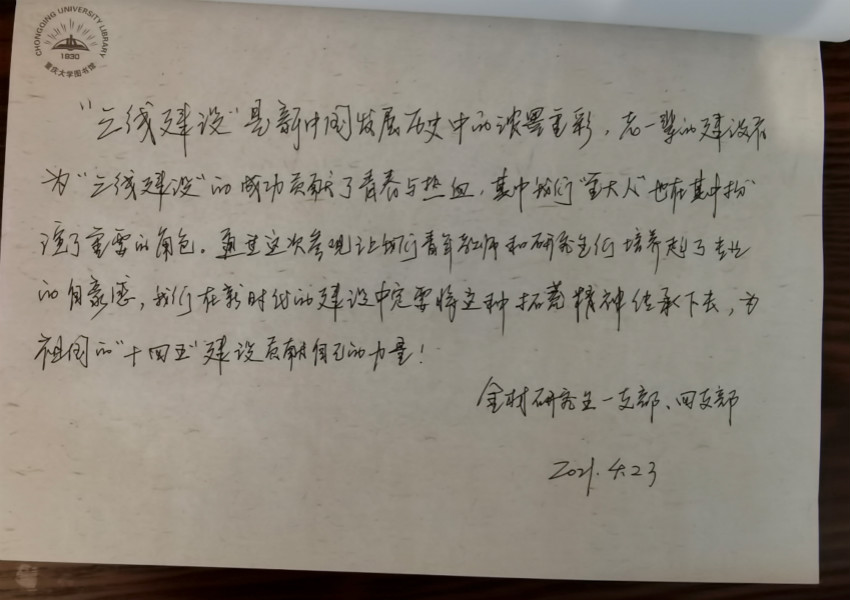 CHONGQING UNIVERSITY LIBRARY
1930
重庆大学图书馆
“三线建设”是新中国发展历史中的浓墨重彩,老一辈的建设者
为“三线建设”的成功贡献了青春与热血,其中我们“重大人”也在其中扮
演了重要的角色。通过这次参观让我们青年教师和研究生们培养起了专业
的自豪感,我们在新时代的建设中定要将这种拓荒精神传承下去,为
祖国的“十四五”建设贡献自己的力量!
金材研究生一支部、四支部
2021.4.23